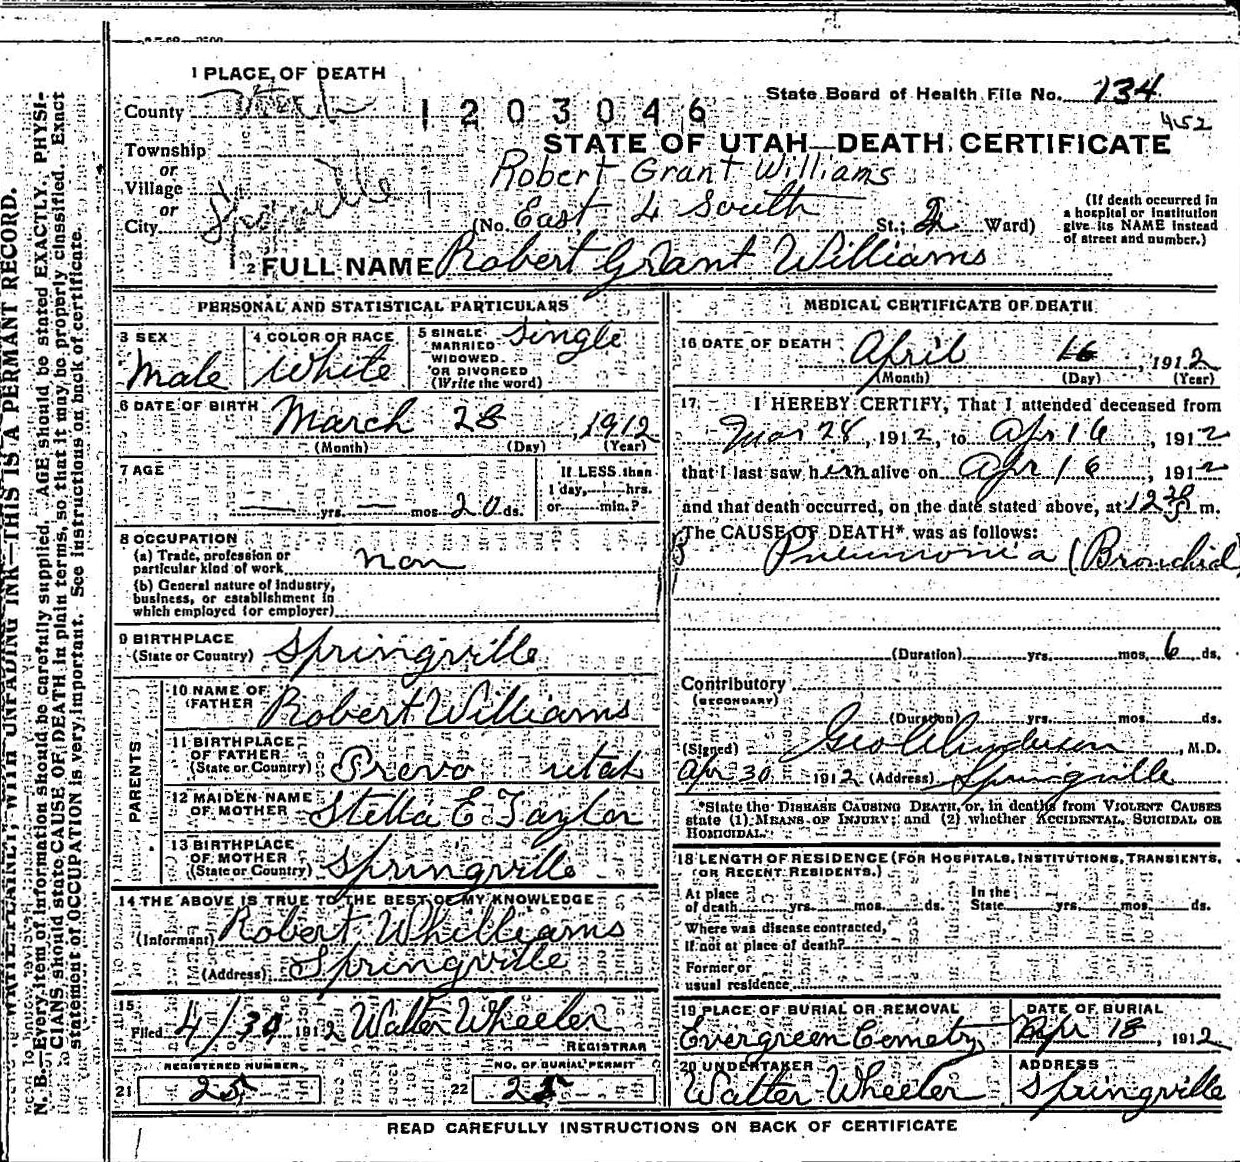 1 PLACE OF DEATH
County Utah
1203046
State Board of Health File No. 134
452
STATE OF UTAH—DEATH CERTIFICATE
Township
or
Village
or
City Springville
Robert Grant Williams
(No. East 4 South St.; 2 Ward)
(If death occurred in
a hospital or institution
give its NAME instead
of street and number.)
2 FULL NAME Robert Grant Williams
PERSONAL AND STATISTICAL PARTICULARS
3 SEX
Male
4 COLOR OR RACE
White
5 SINGLE
MARRIED
WIDOWED
OR DIVORCED
(Write the word)
Single
6 DATE OF BIRTH
March 28, 1912
(Month) (Day) (Year)
7 AGE
— yrs. — mos. 20 ds.
If LESS than
1 day, hrs.
or min.?
8 OCCUPATION
(a) Trade, profession or
particular kind of work non
(b) General nature of industry,
business, or establishment in
which employed (or employer)
9 BIRTHPLACE
(State or Country) Springville
PARENTS
10 NAME OF
FATHER Robert Williams
11 BIRTHPLACE
OF FATHER
(State or Country) Provo utah
12 MAIDEN NAME
OF MOTHER Stella E Taylor
13 BIRTHPLACE
OF MOTHER
(State or Country) Springville
14 THE ABOVE IS TRUE TO THE BEST OF MY KNOWLEDGE
(Informant) Robert Whilliams
(Address) Springville
15
Filed 4/30 1912 Walter Wheeler
REGISTRAR
REGISTERED NUMBER
21 25
NO. OF BURIAL PERMIT
22 25
MEDICAL CERTIFICATE OF DEATH
16 DATE OF DEATH April 16, 1912
(Month) (Day) (Year)
17 I HEREBY CERTIFY, That I attended deceased from
Mar 28, 1912, to Apr 16, 1912
that I last saw him alive on Apr 16, 1912
and that death occurred, on the date stated above, at 12 m.
The CAUSE OF DEATH* was as follows:
Pneumonia (Bronchial
(Duration) yrs. mos. 6 ds.
Contributory
(SECONDARY)
(Duration) yrs. mos. ds.
(Signed) Geo A Anderson, M.D.
Apr 30 1912 (Address) Springville
*State the DISEASE CAUSING DEATH, or, in deaths from VIOLENT CAUSES
state (1) MEANS OF INJURY; and (2) whether ACCIDENTAL, SUICIDAL OR
HOMICIDAL.
18 LENGTH OF RESIDENCE (FOR HOSPITALS, INSTITUTIONS, TRANSIENTS,
OR RECENT RESIDENTS.)
At place
of death yrs. mos. ds.
In the
State yrs. mos. ds.
Where was disease contracted,
if not at place of death?
Former or
usual residence
19 PLACE OF BURIAL OR REMOVAL
Evergreen Cemetry
DATE OF BURIAL
Apr 18, 1912
20 UNDERTAKER
Walter Wheeler
ADDRESS
Springville
READ CAREFULLY INSTRUCTIONS ON BACK OF CERTIFICATE
WRITE PLAINLY, WITH UNFADING INK—THIS IS A PERMANT RECORD.
N. B.—Every item of information should be carefully supplied. AGE should be stated EXACTLY. PHYSI-
CIANS should state CAUSE OF DEATH in plain terms, so that it may be properly classified. Exact
statement of OCCUPATION is very important. See instructions on back of certificate.